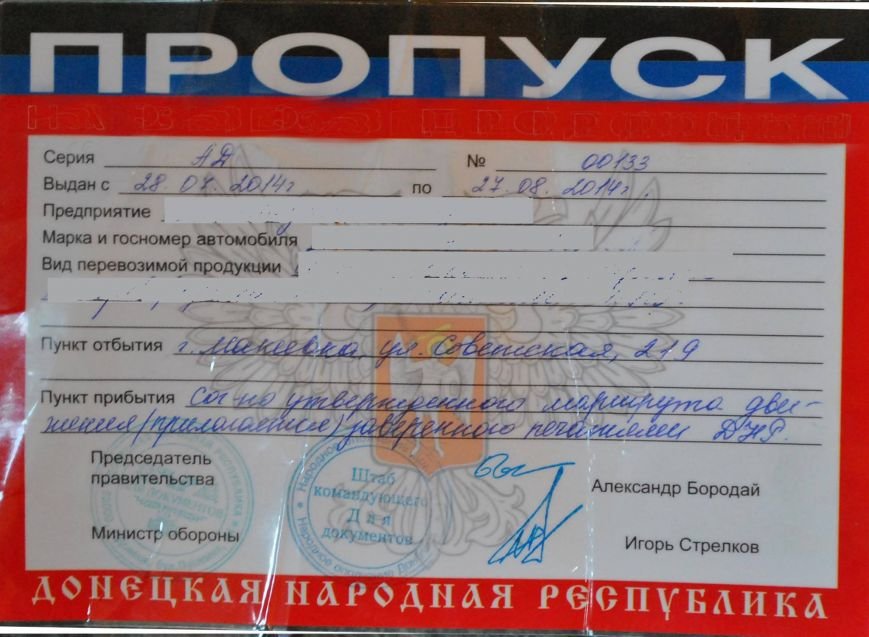 ПРОПУСК
Серия АД № 00133
Выдан с 28.07.2014г по 27.08.2014г.
Предприятие
Марка и госномер автомобиля
Вид перевозимой продукции
Пункт отбытия г. Макеевка, ул. Советская, 219
Пункт прибытия Сог-но утвержденного маршрута дви-
жения (прилагается) заверенного печатями ДНР.
Председатель
правительства
Александр Бородай
Штаб
командующего
Для
документов
Министр обороны
Игорь Стрелков
ДОНЕЦКАЯ НАРОДНАЯ РЕСПУБЛИКА